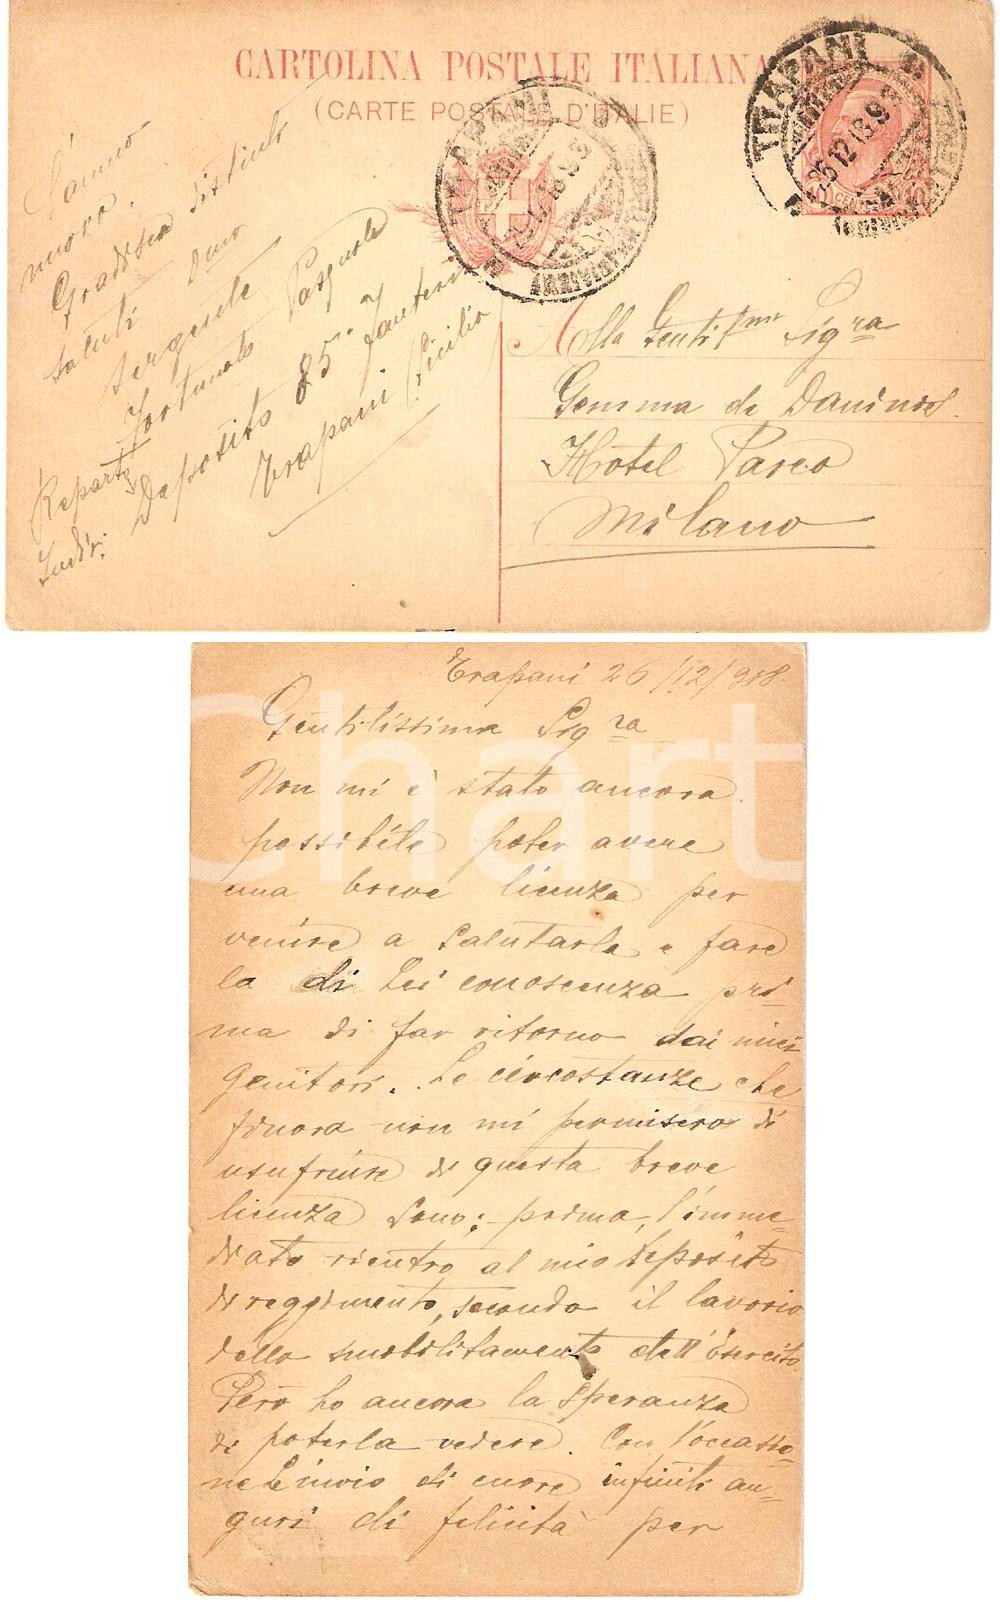 CARTOLINA POSTALE ITALIANA
(CARTE POSTALE D'ITALIE)
TRAPANI
26.12.18.9
TRAPANI
10 CENT 10
l'anno
nuovo.
Gradisca distinto
saluti Dmo
Sergente
Fortunato Pasquale
Reparto
Indir: Deposito 85° Fanteria
Trapani (Sicilia)
Alla Gentilma Sigra
Gemma de
Hôtel Parco
Milano
Trapani 26/12/918
Gentilissima Sigra
Non mi è stato ancora
possibile poter avere
una breve licenza per
venire a salutarla e fare
la di Lei conoscenza pri-
ma di far ritorno dai miei
genitori. Le circostanze che
finora non mi permisero di
usufruire di questa breve
licenza sono: prima, l'imme-
diato rientro al mio deposito
di reggimento, secondo il lavorio
della smobilitamento dell'Esercito.
Però ho ancora la speranza
di poterla vedere. Con l'occasio-
ne L'invio di cuore infiniti au-
guri di felicità per
Chart